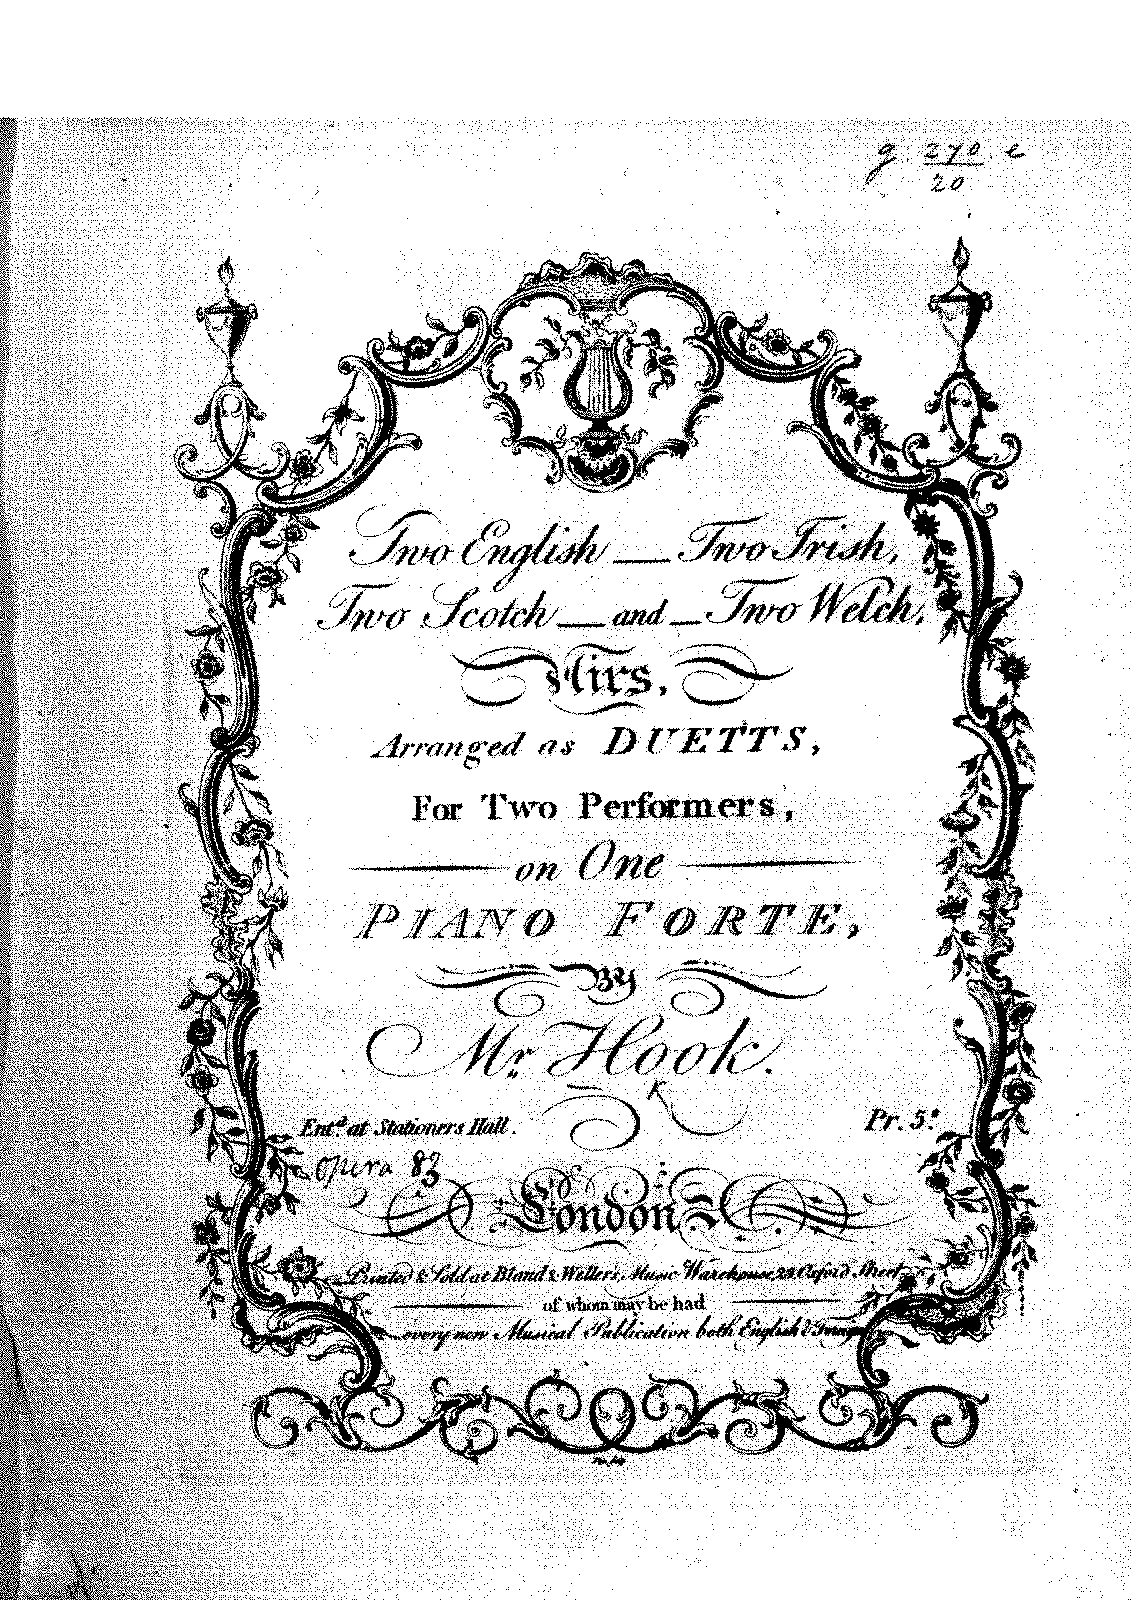 g 270 e
20
Two English — Two Irish,
Two Scotch — and — Two Welch,
Airs,
Arranged as DUETTS,
For Two Performers,
on One
PIANO FORTE,
By
Mr Hook.
K
Entd. at Stationers Hall. Pr. 5s
opera 83
London
Printed & Sold at Bland & Weller's, Music Warehouse, 23 Oxford Street
of whom may be had
every new Musical Publication both English & Foreign